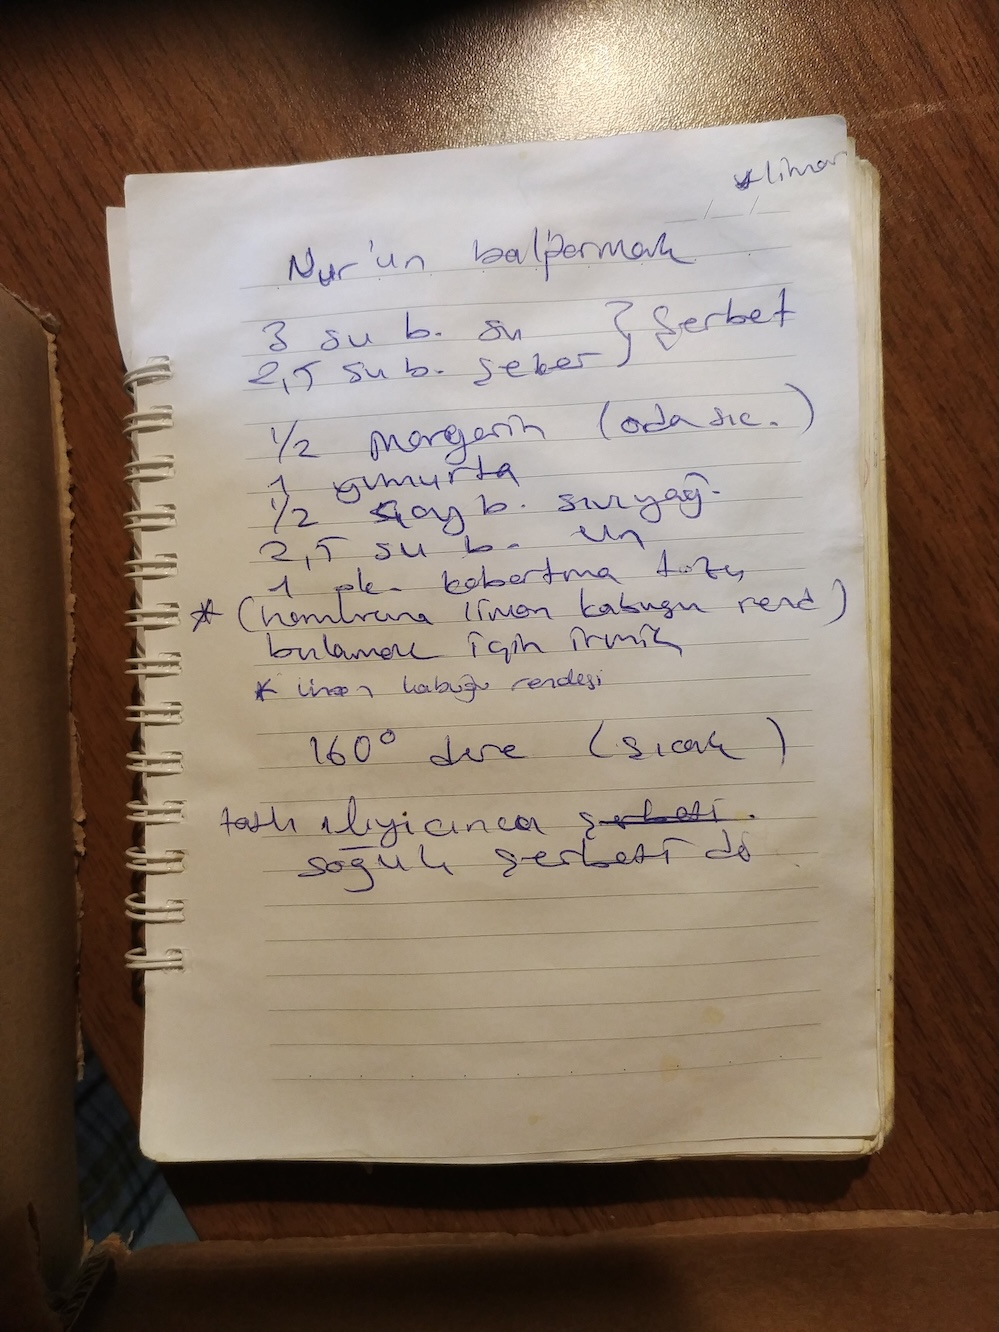 * limon
Nur'un balparmak
3 su b. su } Şerbet
2,5 su b. şeker
1/2 margarin (oda sıc.)
1 yumurta
1/2 çay b. sıvıyağ.
2,5 su b. un
1 pk. kabartma tozu
* (hamuruna limon kabuğu rend)
bulamak için irmik
* limon kabuğu rendesi
160° dere (sıcak)
tatlı ılıyıcınca şerbeti.
soğuk şerbeti dö